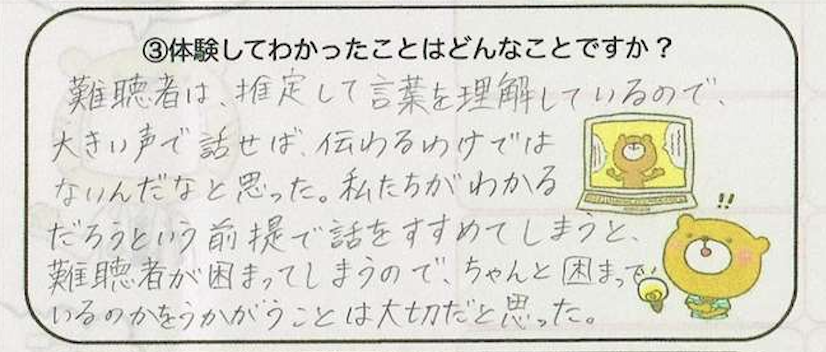 ③体験してわかったことはどんなことですか？
難聴者は、推定して言葉を理解しているので、
大きい声で話せば、伝わるわけでは
ないんだなと思った。私たちがわかる
だろうという前提で話をすすめてしまうと、
難聴者が困まってしまうので、ちゃんと困まって
いるのかをうかがうことは大切だと思った。
!!